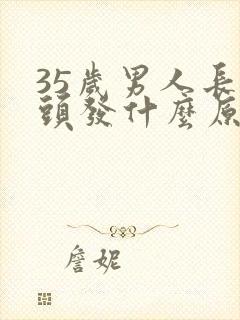 35歲男人長
頭發什麼原
詹妮